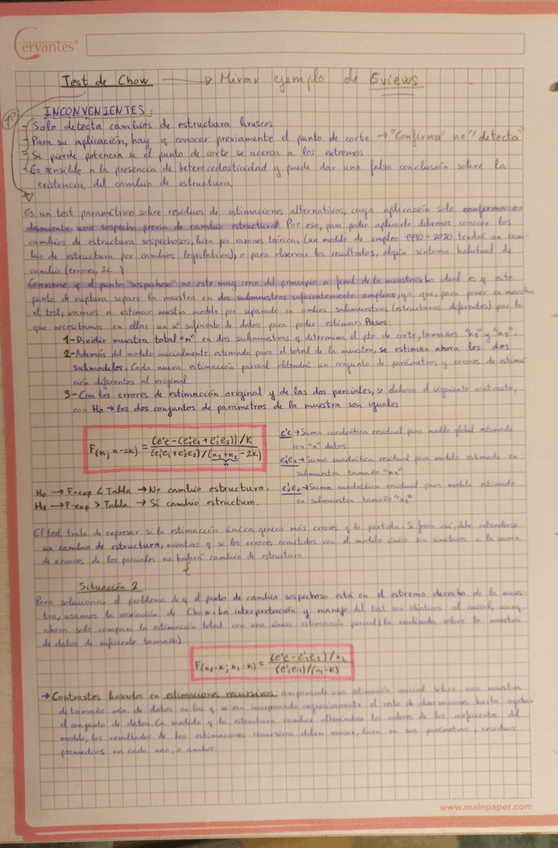 Cervantes
Test de Chow → Mirar ejemplo de Eviews
INCONVENIENTES:
- Solo detecta cambios de estructura bruscos
- Para su aplicación, hay q conocer previamente el punto de corte → "Confirma" no "detecta"
- Se pierde potencia si el punto de corte se acerca a los extremos
- Es sensible a la presencia de heterocedasticidad y puede dar una falsa conclusión sobre la
existencia del cambio de estructura.
Es un test paramétrico sobre residuos de estimaciones alternativas, cuya aplicación solo confirma o
desmiente una sospecha previa de cambio estructural. Por eso, para poder aplicarlo debemos conocer los
cambios de estructura sospechosos, bien por razones teóricas (un modelo de empleo 1990-2020 tendrá un cam-
bio de estructura por cambios legislativos), o para observar los resultados, algún síntoma habitual de
cambio (errores, JC.)
Conviene q el punto "sospechoso" no este muy cerca del principio o final de la muestra. Lo ideal es q este
punto de ruptura separe la muestra en dos submuestras suficientemente amplias, ya que, para poner en marcha
el test, vamos a estimar nuestro modelo por separado en ambas submuestras (estructuras diferentes) por lo
que necesitamos en ellas un nº suficiente de datos para poder estimar. Pasos:
1- Dividir muestra total "n" en dos submuestras q determina el pto de corte, tamaños "n1" y "n2".
2- Además del modelo inicialmente estimado para el total de la muestra, se estiman ahora los dos
submodelos. Cada nueva estimación parcial obtendrá un conjunto de parámetros y errores de estima-
ción diferentes al original.
3- Con los errores de estimación original y de las dos parciales, se elabora el siguiente contraste,
con H0 → los dos conjuntos de parámetros de la muestra son iguales
F(k; n-2k) = (e'e - (e'1e1 + e'2e2))/k / (e'1e1 + e'2e2)/(n1+n2 - 2k)
n
e'e → Suma cuadrática residual para modelo global estimado
con "n" datos.
→ Suma cuadrática residual para modelo estimado en
submuestra tamaño
→ Suma cuadrática residual para modelo estimado
en submuestra tamaño
H0 → F-exp < Tabla → No cambio estructura.
→ F-exp > Tabla → Sí cambio estructura.
El test trata de expresar si la estimación única genera más errores q la partida. Si fuera así, debe entenderse
un cambio de estructura, mientras q si los errores cometidos con el modelo único son similares a la suma
de errores de los parciales no habrá cambio de estructura.
Situación 2
Para solucionar el problema de q el punto de cambio sospechoso está en el extremo derecho de la mues-
tra, usamos la variación de Chow. La interpretación y manejo del test son idénticos al inicial, aunq
ahora solo compara la estimación total con una única estimación parcial (la realizada sobre la muestra
de datos de suficiente tamaño).
F(n2; n1-k) = (e'e - e'1e1)/n2 / (e'1e1)/(n1-k)
→ Contrastes basados en estimaciones recursivas: comparando una estimación inicial sobre una muestra
de datos en los q se van incorporando el resto de observaciones hasta
el conjunto de datos. En medida q la estructura cambie los valores de los coeficientes del
modelo, los resultados de las estimaciones recursivas deben variar, bien en sus parámetros, residuos
en cada uno, o ambos.
www.mainpaper.com